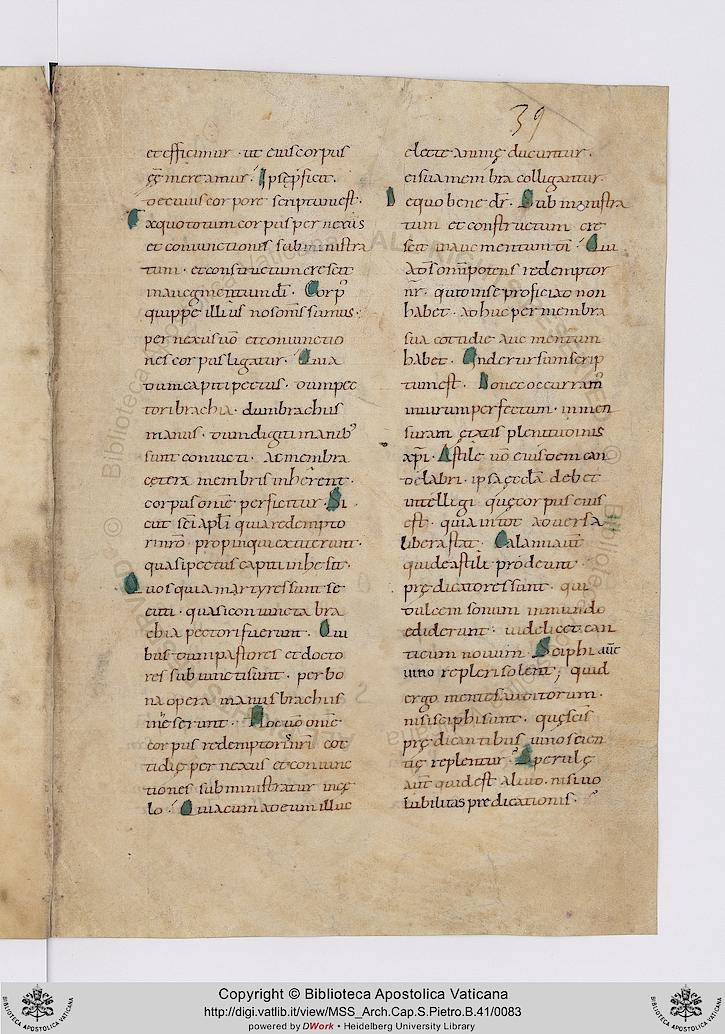 39
et efficimur · ut eius corpus
ęē mereamur · Ipsę p̄ficit ·
De cuius corpore scriptum est ·
Ex quo totum corpus per nexus
et coniunctionis subministra
tum · et constructum crescit
in augmentum dī · Corp᾽
quippe illius nos om̄s sumus ·
per nexus uō et coniunctio
nes corpus ligatur · Quia
dum capiti pectus · dum pec
tori brachia · dum brachiis
manus · dum digiti manib᾽
sunt coniuncti · ac membra
cętera membris inhęrent ·
corpus om̄e perficitur · Si
cut sc̄i ap̄li quia redempto
ri nr̄o propinqui extiterunt ·
quasi pectus capiti inhesit ·
Quos quia martyres sunt se
cuti · quasi coniuncta bra
chia pectori fuerunt · Qui
bus dum pastores et docto
res subiuncti sunt · per bo
na opera manus brachiis
inheserunt · Hoc uō om̄e
corpus redemptoris nr̄i cot
tidię per nexus et coniunc
tiones subministratur in cę
lo · Qui a cum ad eum illuc
electę animę ducuntur ·
ei sua membra colligantur ·
De quo bene dr̄ · Subministra
tum et constructum cre
scit in aucmentum dī · Qui
a d̄s om̄ipotens redemptor
nr̄ · quo in se proficiat non
habet · adhuc per membra
sua cottidie aucmentum
habet · Unde rursum scrip
tum est · Donec occurram᾽
in uirum perfectum · in men
suram ętatis plenitudinis
xp̄i · Astile uō eiusdem can
delabri · ipsa ęcclā debet
intellegi quę corpus eius
est · quia in tot aduersa
libera stat · Calami aut̄
qui de astili prodeunt ·
prędicatores sunt · qui
dulcem sonum in mundo
ediderunt · uidelicet can
ticum nouum · Sciphi aut̄
uino repleri solent ; quid
ergo mentes auditorum ·
nisi sciphi sunt · quę scīs
prędicantibus uino scien
tię replentur · Sperulę
aut̄ quid est aliud · nisi uo
lubilitas predicationis ·
Copyright © Biblioteca Apostolica Vaticana
http://digi.vatlib.it/view/MSS_Arch.Cap.S.Pietro.B.41/0083
powered by DWork • Heidelberg University Library